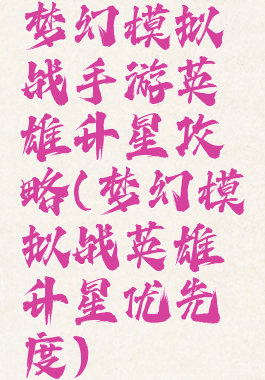 梦幻模拟
战手游英
雄升星攻
略(梦幻模
拟战英雄
升星优先
度)